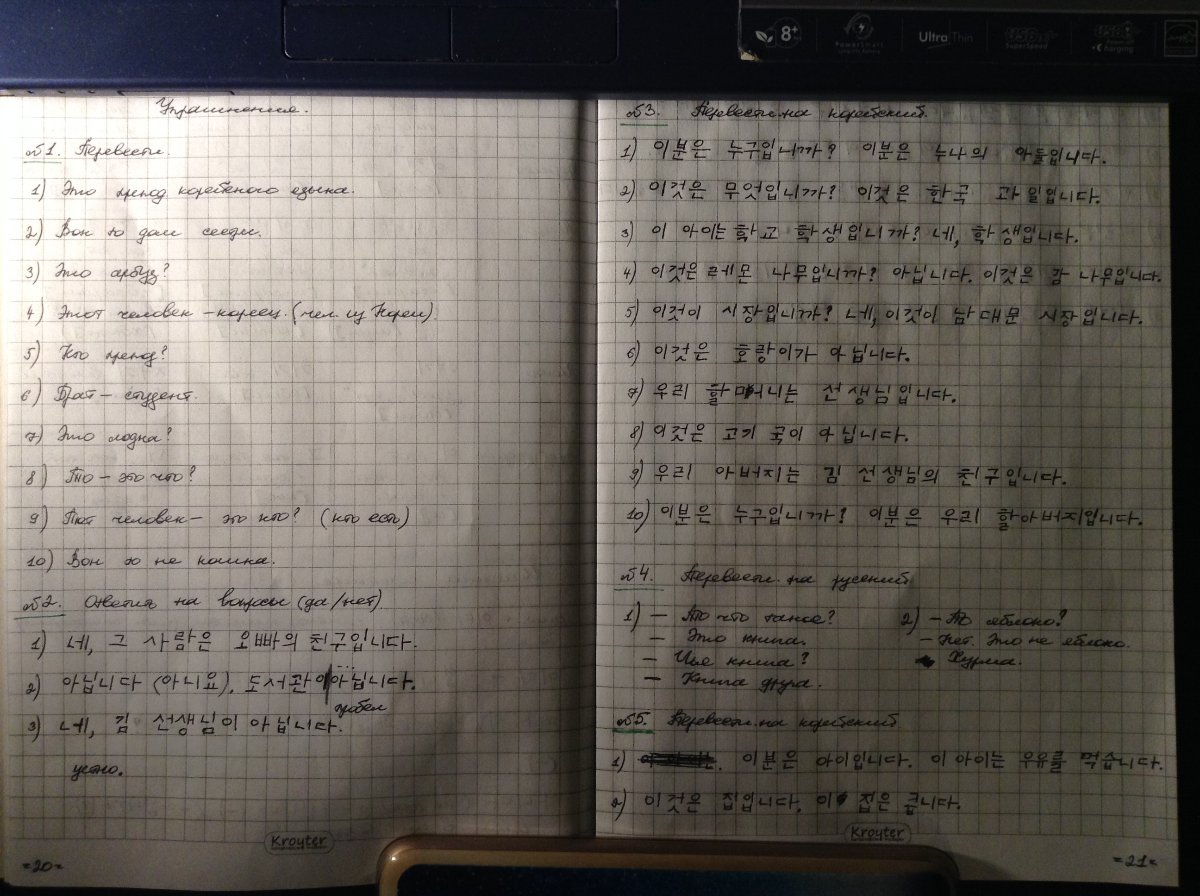 8+
PowerSmart
UltraThin
SuperSpeed
Charging
Упражнения.
№1. Перевести.
1) Это препод корейского языка.
2) Вон то дом сестры.
3) Это арбуз?
4) Этот человек – кореец. (чел. из Кореи).
5) Кто препод?
6) Брат – студент.
7) Это лодка?
8) То – это что?
9) Тот человек – это кто? (кто есть)
10) Вон то не кошка.
№2. Ответить на вопросы (да/нет)
1) 네, 그 사람은 오빠의 친구입니다.
2) 아닙니다 (아니요). 도서관이 아닙니다.
пробел
3) 네, 김 선생님이 아닙니다.
устно.
Kroyter
=20=
№3. Перевести на корейский.
1) 이분은 누구입니까? 이분은 누나의 아들입니다.
2) 이것은 무엇입니까? 이것은 한국 과일입니다.
3) 이 아이는 학교 학생입니까? 네, 학생입니다.
4) 이것은 레몬 나무입니까? 아닙니다. 이것은 감 나무입니다.
5) 이것이 시장입니까? 네, 이것이 남대문 시장입니다.
6) 이것은 호랑이가 아닙니다.
7) 우리 할머니는 선생님입니다.
8) 이것은 고기 국이 아닙니다.
9) 우리 아버지는 김 선생님의 친구입니다.
10) 이분은 누구입니까? 이분은 우리 할아버지입니다.
№4. Перевести на русский
1) – Это что такое?
– Это книга.
– Чья книга?
– Книга друга.
2) – То яблоко?
– Нет. Это не яблоко.
Хурма.
№5. Перевести на корейский
1) 이분은 아이입니다. 이 아이는 우유를 먹습니다.
2) 이것은 집입니다. 이 집은 큽니다.
Kroyter
=21=